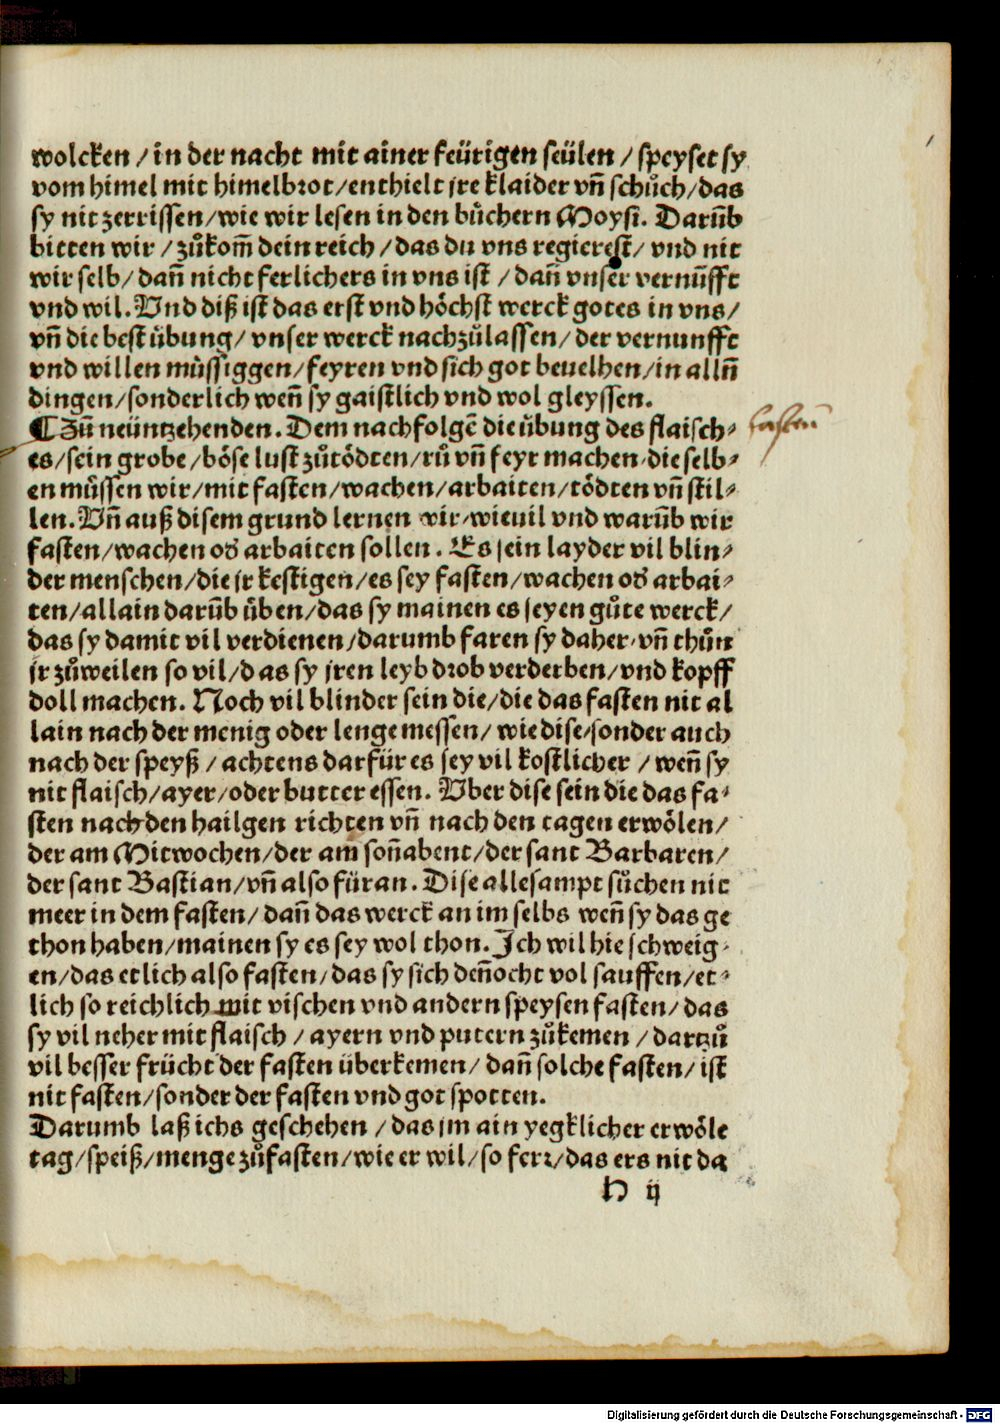 wolcken /in der nacht mit ainer feürigen seülen / speyset sy
vom himel mit himelbrot/enthielt jre klaider vn̄ schůch/das
sy nit zerrissen/wie wir lesen in den bůchern Moysi. Darūb
bitten wir / zůkom̄ dein reich /das du vns regierest/ vnd nit
wir selb/ dan̄ nicht ferlichers in vns ist / dan̄ vnser vernūfft
vnd wil. Vnd diß ist das erst vnd höchst werck gotes in vns/
vn̄ die best übung/ vnser werck nachzůlassen/ der vernunfft
vnd willen müssiggen/feyren vnd sich got beuelhen/in alln̄
dingen/sonderlich wen̄ sy gaistlich vnd wol gleyssen.
¶ Zū neüntzehenden. Dem nachfolgē die übung des flaisch⸗
es/sein grobe/böse lust zůtödten/rů vn̄ feyr machen/die selb⸗
en müssen wir/mit fasten/wachen/arbaiten/tödten vn̄ stil⸗
len. Vn̄ auß disem grund lernen wir/wieuil vnd warūb wir
fasten/wachen od̕ arbaiten sollen. Es sein layder vil blin⸗
der menschen/die jr kestigen/es sey fasten/wachen od̕ arbai⸗
ten/allain darūb üben/das sy mainen es seyen gůte werck/
das sy damit vil verdienen/darumb faren sy daher/vn̄ thůn
jr zůweilen so vil/das sy jren leyb drob verderben/vnd kopff
doll machen. Noch vil blinder sein die/die das fasten nit al
lain nach der menig oder lenge messen/ wie dise/sonder auch
nach der speyß / achtens darfür es sey vil kostlicher / wen̄ sy
nit flaisch/ayer/oder butter essen. Vber dise sein die das fa⸗
sten nach den hailgen richten vn̄ nach den tagen erwölen/
der am Mitwochen/der am son̄abent/der sant Barbaren/
der sant Bastian/vn̄ also füran. Dise allesampt sůchen nit
meer in dem fasten/ dan̄ das werck an im selbs wen̄ sy das ge
thon haben/mainen sy es sey wol thon. Ich wil hie schweig⸗
en/das etlich also fasten/das sy sich den̄ocht vol sauffen/et⸗
lich so reichlich mit vischen vnd andern speysen fasten/ das
sy vil neher mit flaisch / ayern vnd putern zůkemen / dartzů
vil besser frücht der fasten überkemen/ dan̄ solche fasten/ ist
nit fasten/sonder der fasten vnd got spotten.
Darumb laß ichs geschehen /das jm ain yegklicher erwöle
tag/speiß/menge zůfasten/wie er wil/so ferr/das ers nit da
H ij
fasten
Digitalisierung gefördert durch die Deutsche Forschungsgemeinschaft - DFG